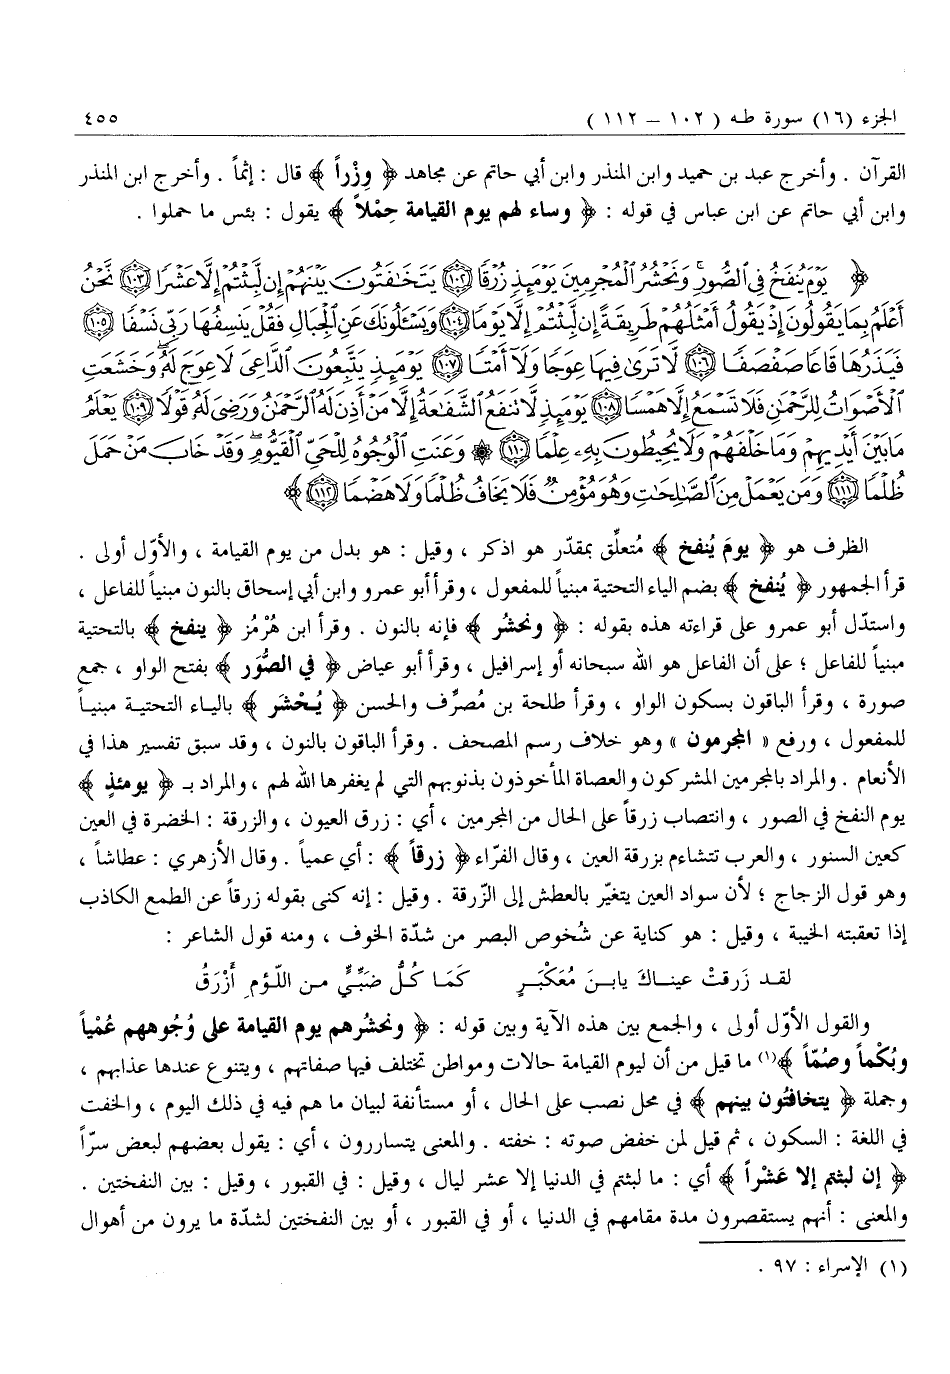 الجزء (١٦) سورة طه ( ١٠٢ – ١١٢ ) ٤٥٥
القرآن . وأخرج عبد بن حميد وابن المنذر وابن أبي حاتم عن مجاهد ﴿ وِزْراً ﴾ قال : إثماً . وأخرج ابن المنذر
وابن أبي حاتم عن ابن عباس في قوله : ﴿ وساء لهم يوم القيامة حِمْلاً ﴾ يقول : بئس ما حملوا .
﴿ يَوْمَ يُنفَخُ فِي ٱلصُّورِ ۚ وَنَحْشُرُ ٱلْمُجْرِمِينَ يَوْمَئِذٍ زُرْقًا ١٠٢ يَتَخَٰفَتُونَ بَيْنَهُمْ إِن لَّبِثْتُمْ إِلَّا عَشْرًا ١٠٣ نَّحْنُ
أَعْلَمُ بِمَا يَقُولُونَ إِذْ يَقُولُ أَمْثَلُهُمْ طَرِيقَةً إِن لَّبِثْتُمْ إِلَّا يَوْمًا ١٠٤ وَيَسْـَٔلُونَكَ عَنِ ٱلْجِبَالِ فَقُلْ يَنسِفُهَا رَبِّي نَسْفًا ١٠٥
فَيَذَرُهَا قَاعًا صَفْصَفًا ١٠٦ لَّا تَرَىٰ فِيهَا عِوَجًا وَلَآ أَمْتًا ١٠٧ يَوْمَئِذٍ يَتَّبِعُونَ ٱلدَّاعِيَ لَا عِوَجَ لَهُۥ ۖ وَخَشَعَتِ
ٱلْأَصْوَاتُ لِلرَّحْمَٰنِ فَلَا تَسْمَعُ إِلَّا هَمْسًا ١٠٨ يَوْمَئِذٍ لَّا تَنفَعُ ٱلشَّفَٰعَةُ إِلَّا مَنْ أَذِنَ لَهُ ٱلرَّحْمَٰنُ وَرَضِيَ لَهُۥ قَوْلًا ١٠٩ يَعْلَمُ
مَا بَيْنَ أَيْدِيهِمْ وَمَا خَلْفَهُمْ وَلَا يُحِيطُونَ بِهِۦ عِلْمًا ١١٠ ۞ وَعَنَتِ ٱلْوُجُوهُ لِلْحَيِّ ٱلْقَيُّومِ ۖ وَقَدْ خَابَ مَنْ حَمَلَ
ظُلْمًا ١١١ وَمَن يَعْمَلْ مِنَ ٱلصَّٰلِحَٰتِ وَهُوَ مُؤْمِنٌ فَلَا يَخَافُ ظُلْمًا وَلَا هَضْمًا ١١٢ ﴾
الظرف هو ﴿ يومَ يُنفخ ﴾ مُتعلِّق بمقدّر هو اذكر ، وقيل : هو بدل من يوم القيامة ، والأوّل أولى .
قرأ الجمهور ﴿ يُنفخ ﴾ بضم الياء التحتية مبنياً للمفعول ، وقرأ أبو عمرو وابن أبي إسحاق بالنون مبنياً للفاعل ،
واستدّل أبو عمرو على قراءته هذه بقوله : ﴿ ونحشُر ﴾ فإنه بالنون . وقرأ ابن هُرْمُز ﴿ ينفخ ﴾ بالتحتية
مبنياً للفاعل ؛ على أن الفاعل هو الله سبحانه أو إسرافيل ، وقرأ أبو عياض ﴿ في الصُّوَر ﴾ بفتح الواو ، جمع
صورة ، وقرأ الباقون بسكون الواو ، وقرأ طلحة بن مُصرِّف والحسن ﴿ يُحْشَر ﴾ بالياء التحتية مبنياً
للمفعول ، ورفع « المجرمون » وهو خلاف رسم المصحف . وقرأ الباقون بالنون ، وقد سبق تفسير هذا في
الأنعام . والمراد بالمجرمين المشركون والعصاة المأخوذون بذنوبهم التي لم يغفرها الله لهم ، والمراد بـ ﴿ يومئذٍ ﴾
يوم النفخ في الصور ، وانتصاب زرقاً على الحال من المجرمين ، أي : زرق العيون ، والزرقة : الخضرة في العين
كعين السنور ، والعرب تتشاءم بزرقة العين ، وقال الفرّاء ﴿ زرقاً ﴾ : أي عمياً . وقال الأزهري : عطاشاً ،
وهو قول الزجاج ؛ لأن سواد العين يتغيّر بالعطش إلى الزّرقة . وقيل : إنه كنى بقوله زرقاً عن الطمع الكاذب
إذا تعقبته الخيبة ، وقيل : هو كناية عن شُخوص البصر من شدّة الخوف ، ومنه قول الشاعر :
لقد زَرقتْ عيناكَ يابنَ مُعَكْبَرٍ كَمَا كُلُّ ضَبِّيٍّ من اللّؤمِ أَزْرَقُ
والقول الأوّل أولى ، والجمع بين هذه الآية وبين قوله : ﴿ ونحشُرهم يوم القيامة على وُجُوههم عُمْياً
وبُكْماً وصُمّاً ﴾(١) ما قيل من أن ليوم القيامة حالات ومواطن تختلف فيها صفاتهم ، ويتنوع عندها عذابهم ،
وجملة ﴿ يتخافتُون بينهم ﴾ في محل نصب على الحال ، أو مستأنفة لبيان ما هم فيه في ذلك اليوم ، والخفت
في اللغة : السكون ، ثم قيل لمن خفض صوته : خفته . والمعنى يتساررون ، أي : يقول بعضهم لبعض سرّاً
﴿ إن لبثتم إلا عَشْراً ﴾ أي : ما لبثتم في الدنيا إلا عشر ليال ، وقيل : في القبور ، وقيل : بين النفختين .
والمعنى : أنهم يستقصرون مدة مقامهم في الدنيا ، أو في القبور ، أو بين النفختين لشدّة ما يرون من أهوال
(١) الإسراء : ٩٧ .